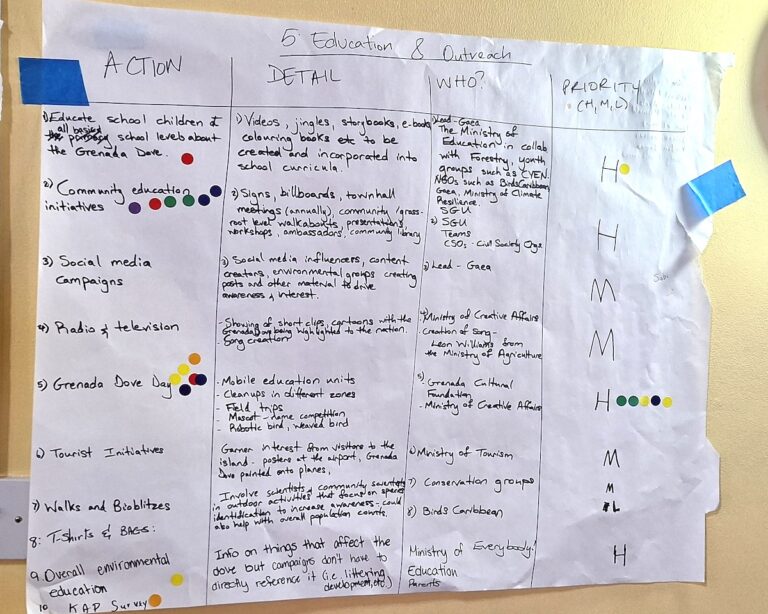 5. Education & Outreach
ACTION
DETAIL
WHO?
PRIORITY
(H, M, L)
1) Educate school children at
all basic
school levels about
the Grenada Dove.
1) Videos, jingles, storybooks, e-books
colouring books etc to be
created and incorporated into
school curricula.
1) Lead - Gaea
The Ministry of
Education in collab
with Forestry, youth
groups such as CYEN.
NGOs such as BirdsCaribbean,
Gaea, Ministry of Climate
Resilience.
SGU
H
2) Community education
initiatives
2) Signs, billboards, townhall
meetings (annually), community /grass-
root level walkabouts, presentations,
workshops, ambassadors, community library
2) SGU
Teams
CSOs - Civil Society Orgs
H
3) Social media
campaigns
3) Social media influencers, content
creators, environmental groups creating
posts and other material to drive
awareness & interest.
3) Lead - Gaea
M
4) Radio & television
- Showing of short clips cartoons with the
Grenada Dove being highlighted to the nation.
- Song creation
4) Ministry of Creative Affairs
Creation of Song -
Leon Williams from
the Ministry of Agriculture
M
5) Grenada Dove Day
- Mobile education units
- Cleanups in different zones
- Field trips
- Mascot - name competition
- Robotic bird, weaved bird
5) Grenada Cultural
Foundation
- Ministry of Creative Affairs
H
6) Tourist Initiatives
Garner interest from visitors to the
island - posters at the airport, Grenada
Dove painted onto planes,
6) Ministry of Tourism
M
7) Walks and Bioblitzes
Involve scientists, community scientists
in outdoor activities that focus on species
identification to increase awareness - could
also help with overall population counts.
7) Conservation groups
M
8: T-Shirts & BAGS:
8) Birds Caribbean
L
9. Overall environmental
education
Info on things that affect the
dove but campaigns don't have to
directly reference it (i.e. littering
development, etc.)
Ministry of Everybody!
Education
Parents
H
10 KAP Survey